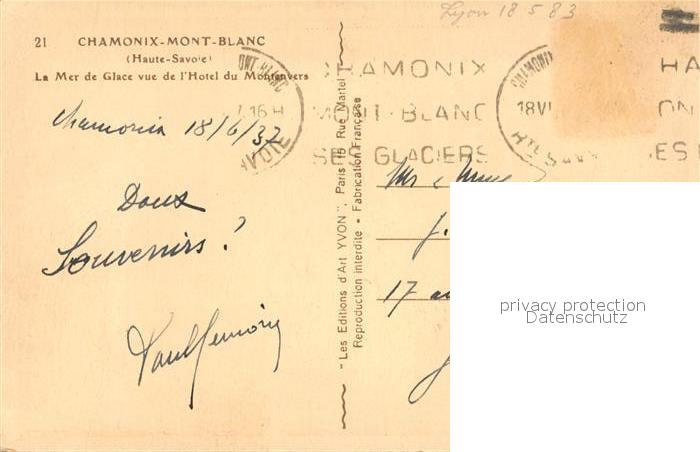 Lyon 18 5 83
21 CHAMONIX-MONT-BLANC
(Haute-Savoie)
La Mer de Glace vue de l'Hotel du Montenvers
CHAMONIX
MONT-BLANC
SES GLACIERS
16 H
18 VI
CHAMONIX
HTE SAV
HA
ON
SES
Chamonix 18/6/37
Doux
Souvenirs !
"Les Editions d'Art YVON", Paris 15 Rue Martel
Reproduction interdite • Fabrication Française
Mr & Mme
J.
17
privacy protection
Datenschutz